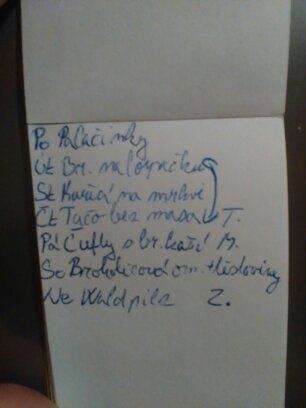 Po Palačinky
Út Br. na loupačku
St Kuřecí na mrkvi
Čt Tačo bez masa T.
Pá Čufty s br. kaší M.
So Brokolicová om. těstoviny
Ne Waldpilz Z.